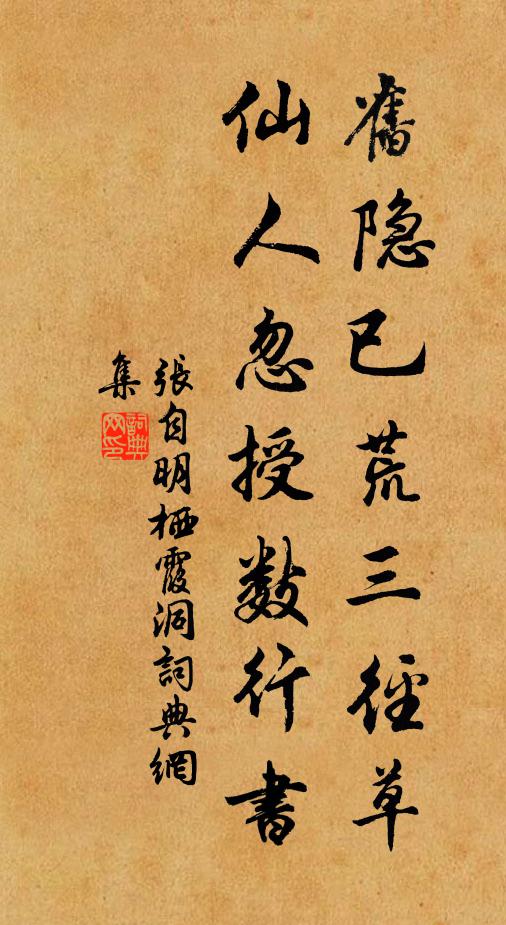 舊隐已荒三徑草
仙人忽授數行書
張自明栖霞洞詞典網
集
詞典
网印